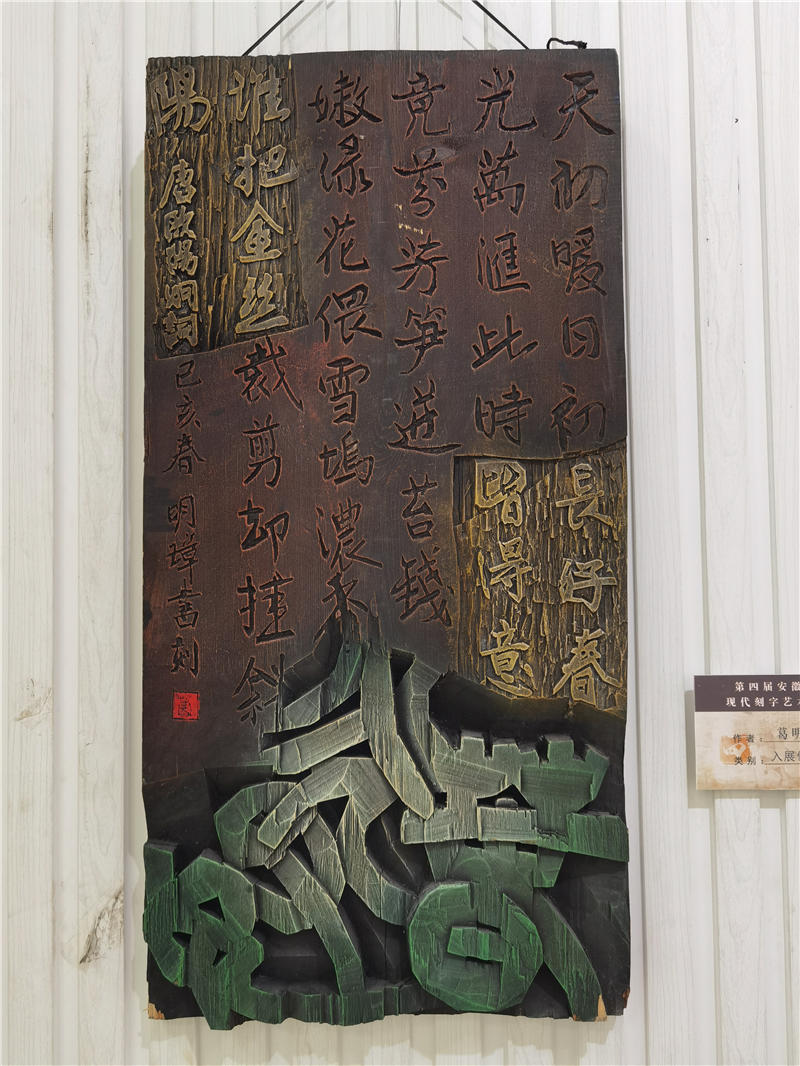 天初暖日初長好春
光萬滙此時皆得意
竟芬芳笋迸苔錢
嫩绿花偎雪塢濃香
谁把金丝裁剪却挂斜
陽 唐欧陽炯詞 己亥春 明璋書刻
第四届安徽
现代刻字艺
作者：葛明
类别：入展